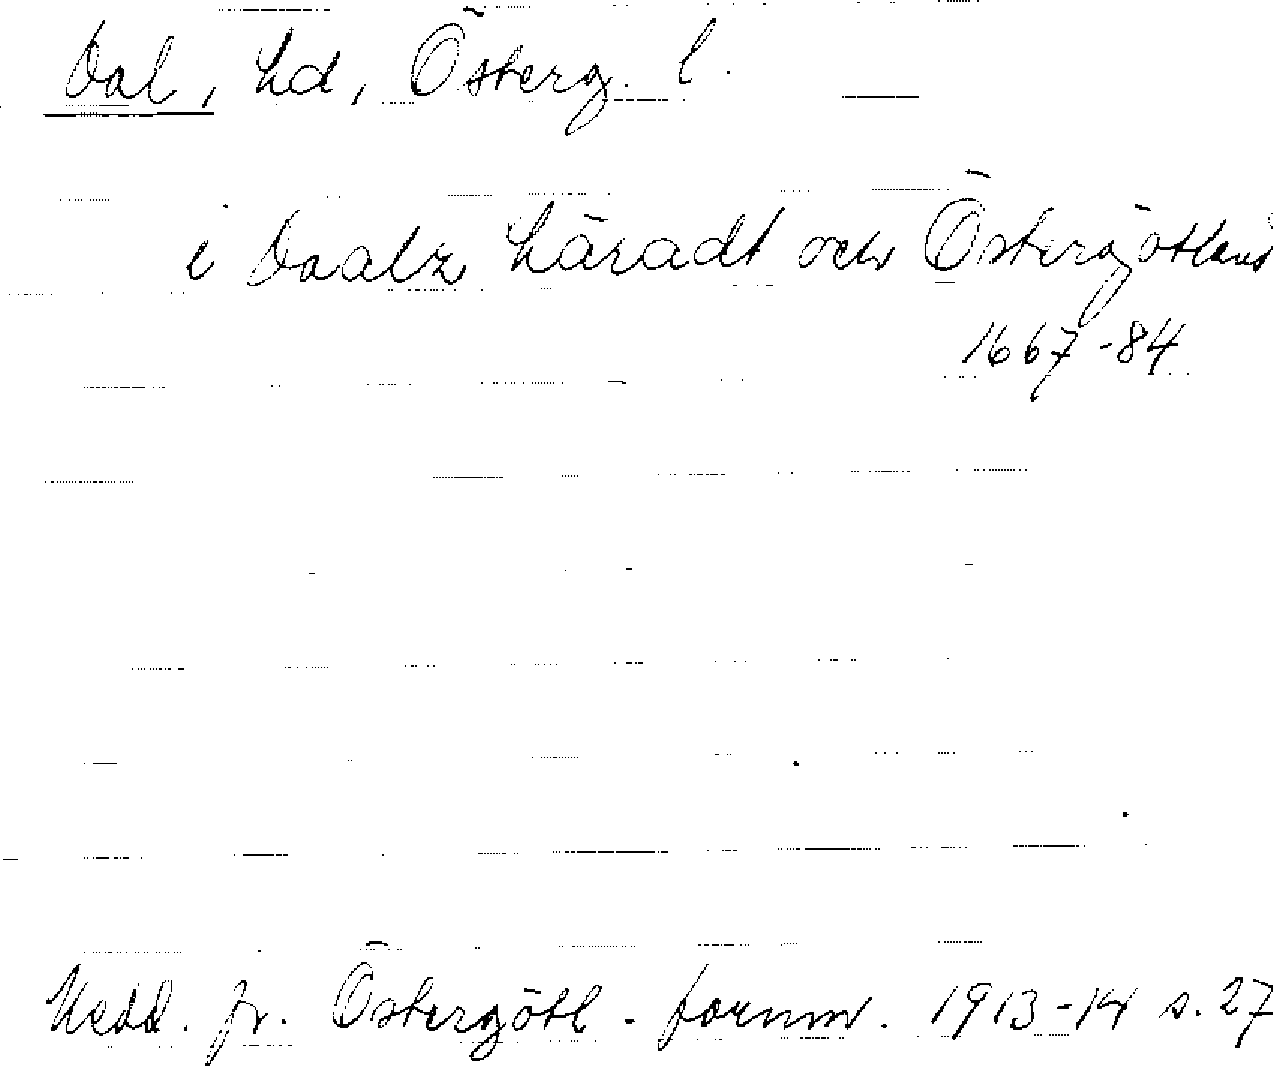 Dal, hd, Österg. l.
i Daalz häradt och Östergötland
1667-84
Medd. fr. Östergötl. fornm. 1913-14 s. 27